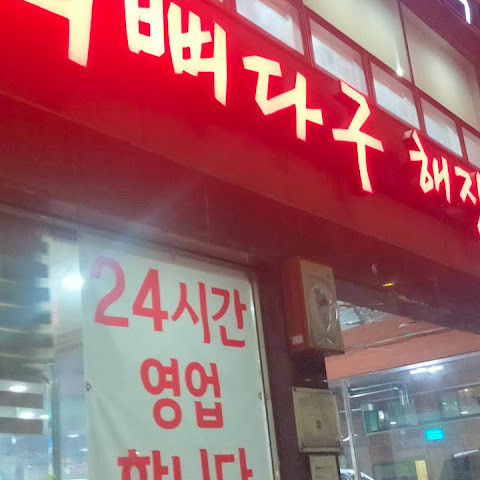 뼈다구 해장
24시간
영업
합니다